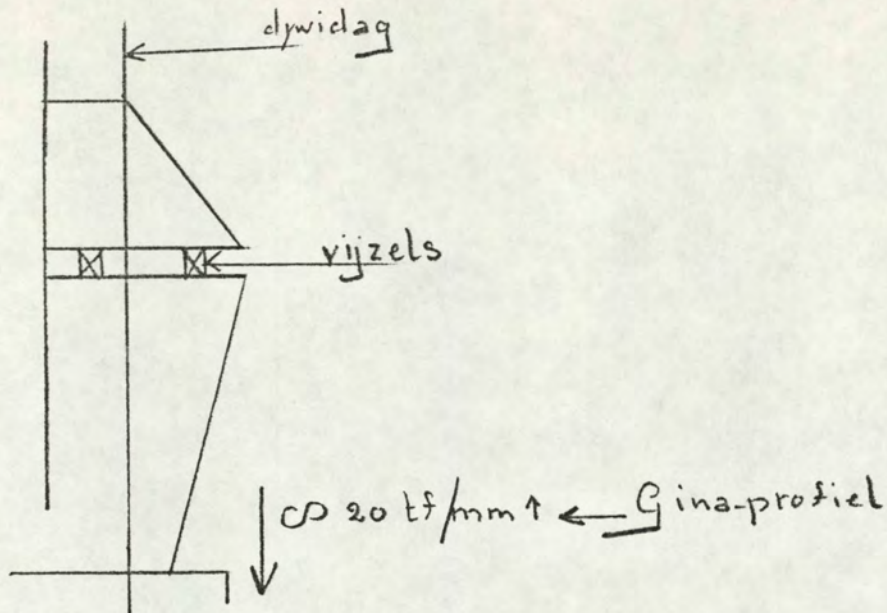 dywidag
vijzels
∞ 20 tf/mm ↑ ← Gina-profiel